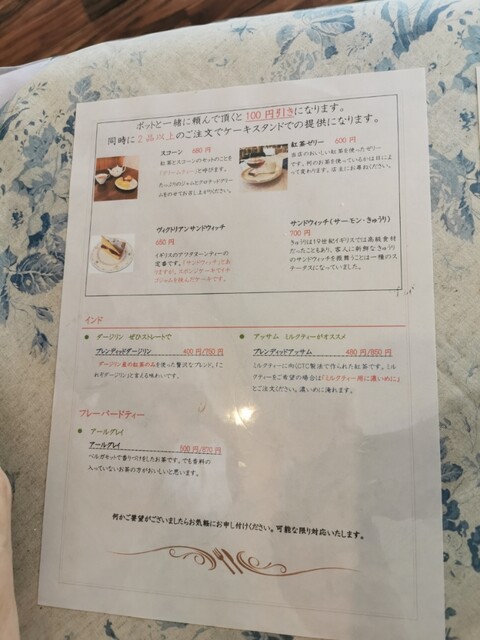 ポットと一緒に頼んで頂くと 100円引きになります。
同時に2品以上のご注文でケーキスタンドでの提供になります。
スコーン 680円
紅茶とスコーンのセットのことを
「クリームティー」と呼びます。
たっぷりのジャムとクロテッドクリー
ムをのせてお召し上がりください。
紅茶ゼリー 600円
当店のおいしい紅茶を使ったゼリー
です。何のお茶を使っているかは日によ
って変わります。店主にお尋ねください。
ヴィクトリアンサンドウィッチ
650円
イギリスのアフタヌーンティーの
定番です。「サンドウィッチ」とあ
りますが、スポンジケーキでイチ
ゴジャムを挟んだケーキです。
サンドウィッチ(サーモン・きゅうり)
700円
きゅうりは19世紀イギリスでは高級食材
だったこともあり、客人に新鮮なきゅうり
のサンドウィッチを振舞うことは一種のス
テータスになっていました。
インド
● ダージリン ぜひストレートで
ブレンディッドダージリン 400円/750円
ダージリン産の紅茶のみを使った贅沢なブレンド。「こ
れぞダージリン」と言える味わいです。
● アッサム ミルクティーがオススメ
ブレンディッドアッサム 480円/850円
ミルクティーに向くCTC製法で作られた紅茶です。ミル
クティーをご希望の場合は「ミルクティー用に濃いめに」
とご注文ください。濃いめに淹れます。
フレーバードティー
● アールグレイ
アールグレイ 500円/870円
ベルガモットで香りづけをしたお茶です。でも香料の
入っていないお茶の方がおいしいと思います。
何かご要望がございましたらお気軽にお申し付けください。可能な限り対応いたします。